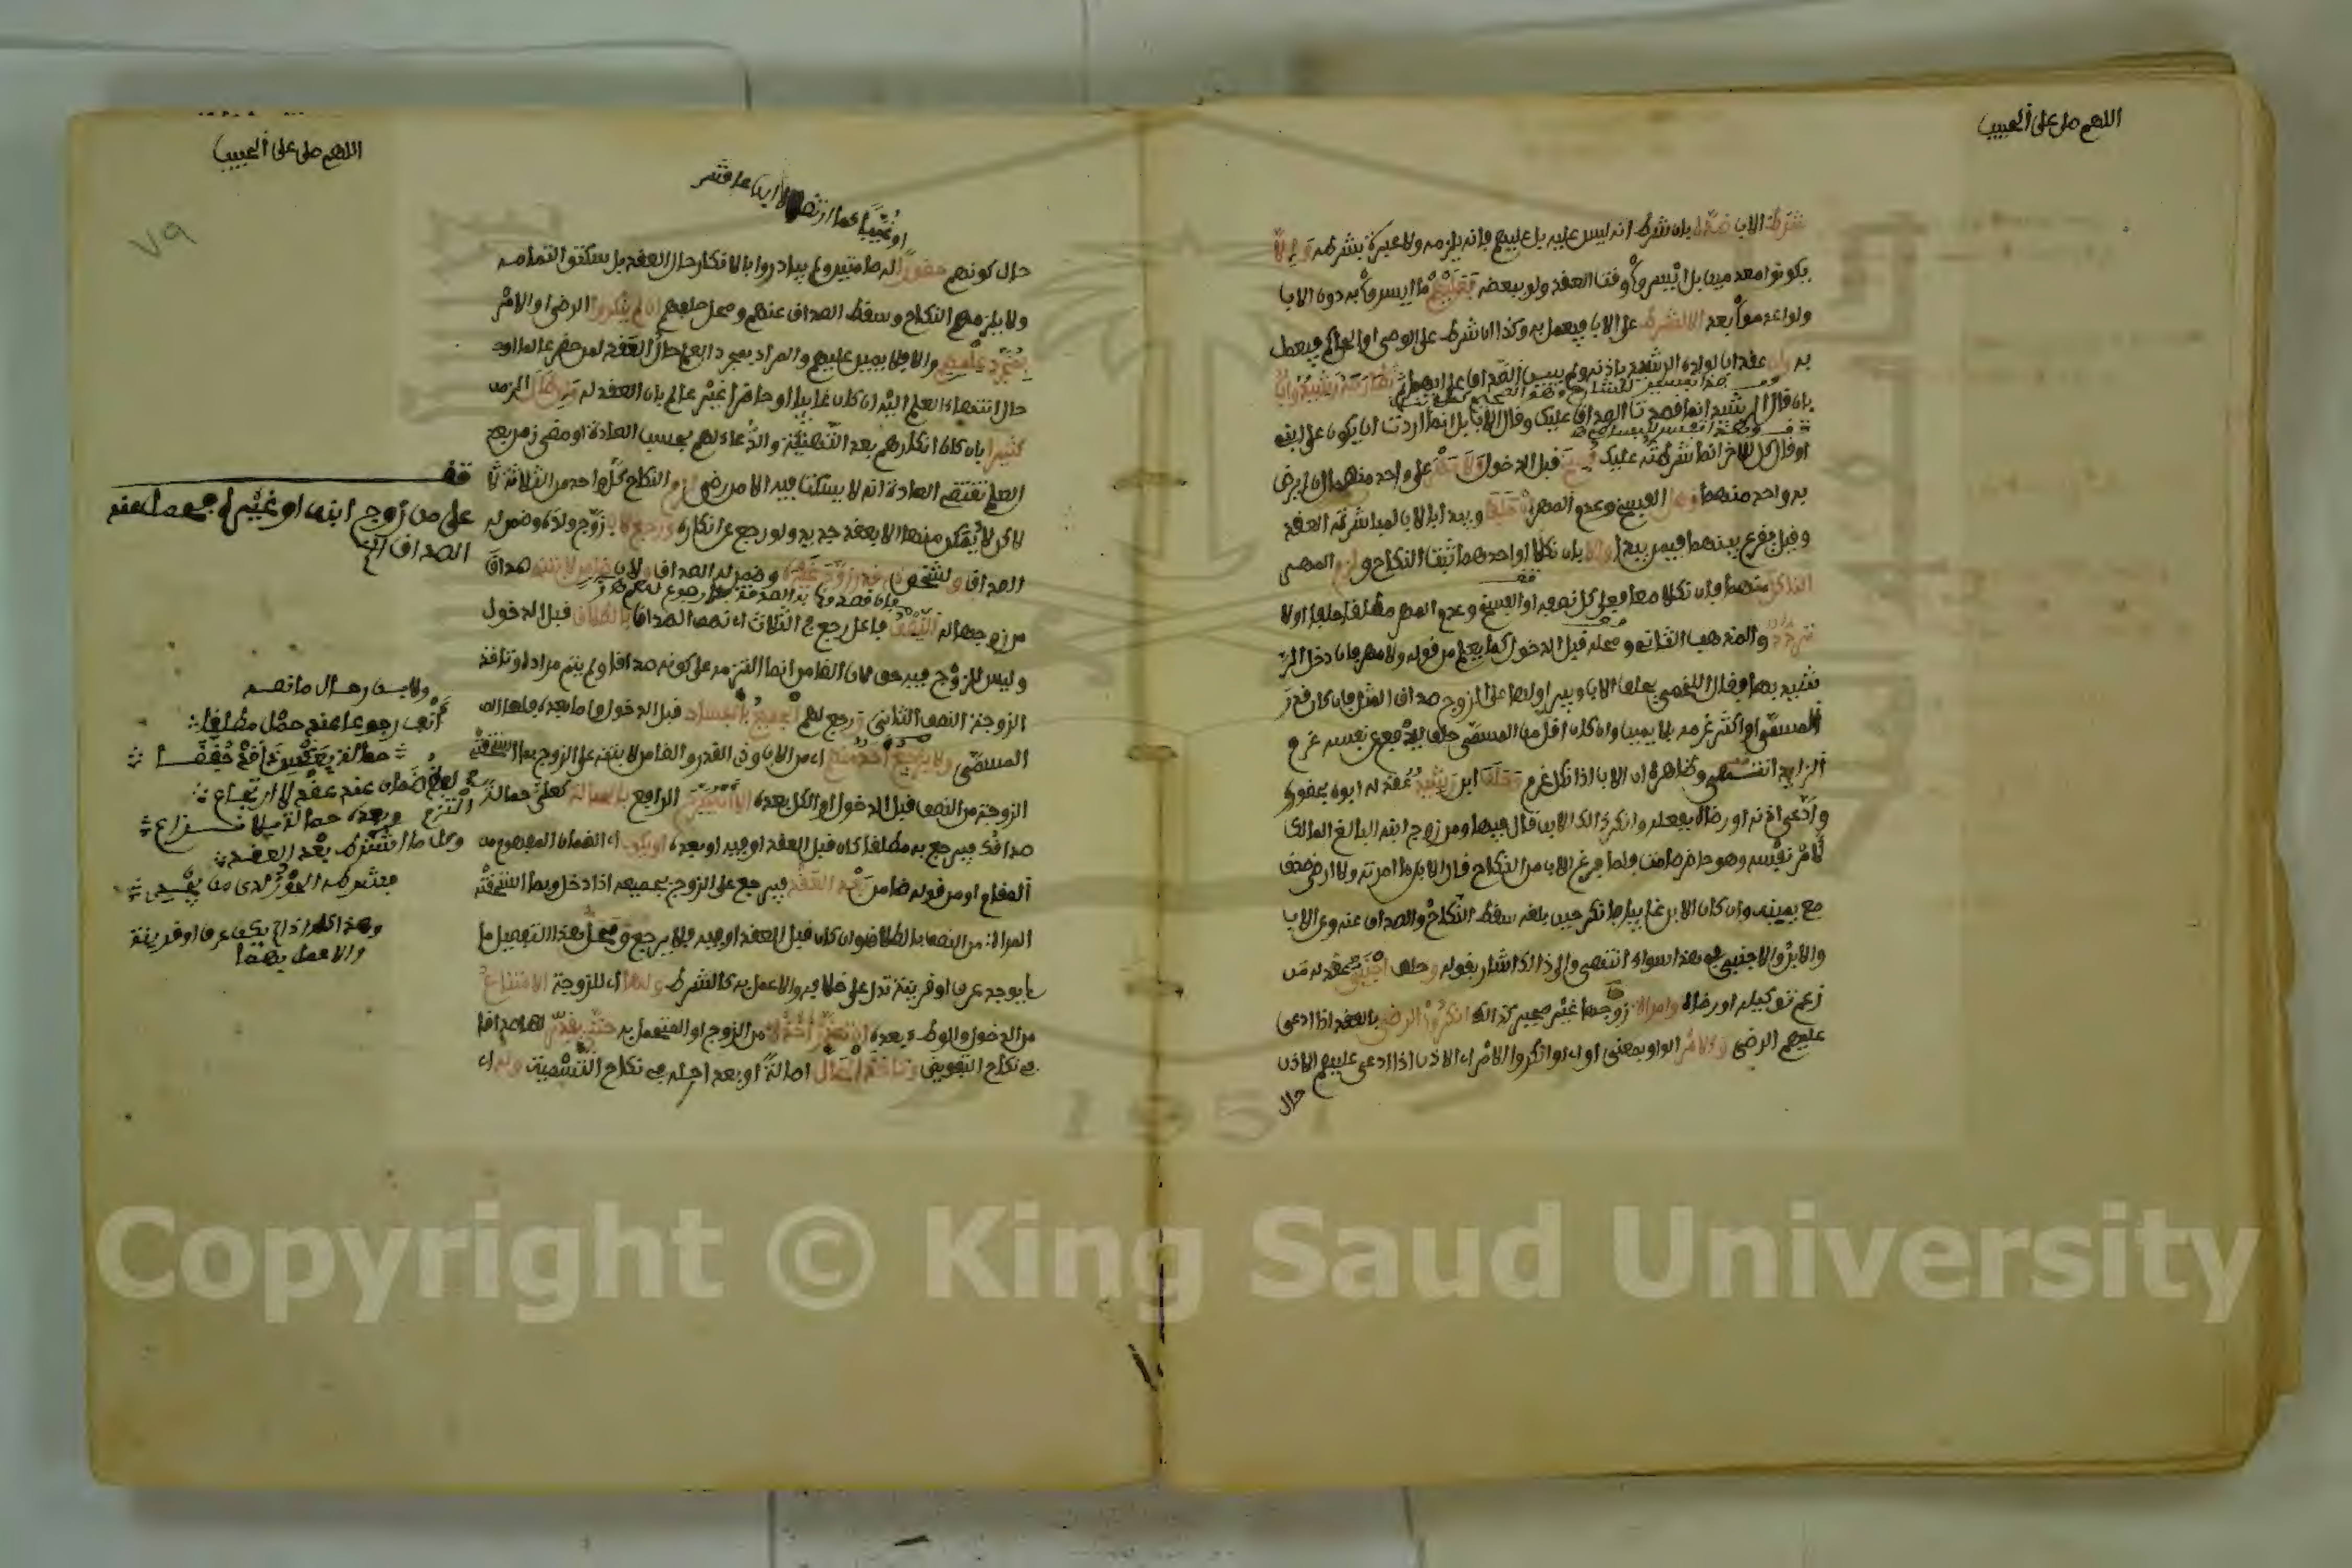 اللهم صل على الحبيب
شرط الاب ضده بان شرط انه ليس عليه بل عليهم فانه يلزمه ولا عبرة بشرطه والا
يكونوا معدمين بل ايسروا وقت العقد ولو ببعضه فعليهم ما ايسروا به دون الاب
ولو اعدموا بعد الا لشرط على الاب فيعمل به وكذا ان شرط على الوصي او الحاكم فيعمل
به وان عقد اب لولده الرشيد باذنه ولم يبين الصداق على ايهما تطارحه رشيد واب
بان قال الرشيد انما قصدت الصداق عليك وقال الاب بل انما اردت ان يكون على ابنه
او قال كل للاخر انما شرطته عليك فسخ قبل الدخول ولا مهر على واحد منهما ان لم يرض
به واحد منهما وهل الفسخ وعدم المهر ان حلفا ويبدا بالاب لمباشرته العقد
وقيل يقرع بينهما فيمن يبدا والا بان نكلا او احدهما ثبت النكاح ولزم المهر
الناكل منهما فان نكلا معا فعلى كل نصفه او الفسخ وعدم المهر مطلقا حلفا او لا
تردد والمذهب الثاني ومحله قبل الدخول كما يعلم من قوله ولا مهر فان دخل الر
شيد بها فقال اللخمي يحلف الاب ويبرا ولها على الزوج صداق المثل فان كان قدر
المسمى او اكثر غرمه بلا يمين وان كان اقل من المسمى حلف ليدفع عن نفسه غرم
الزايد انتهى وظاهره ان الاب اذا نكل غرم وحلف ابن رشيد عقد له ابوه بحضوره
وادعى اذنه او رضاه بفعله وانكر ذلك الابن قال فيها ومن زوج ابنه البالغ المالك
لامر نفسه وهو حاضر صامت فلما فرغ الاب من النكاح قال الابن ما امرته ولا ارضى صدق
مع يمينه وان كان الابن غايبا فانكر حين بلغه سقط النكاح والصداق عنه وعن الاب
والابن والاجنبي في هذا سواء انتهى والى ذلك اشار بقوله وحلف اجنبي عقد له من
زعم توكيله او رضاه وامراة زوجها غير مجبر كذلك انكروا الرضى بالعقد اذا ادعى
عليهم الرضى والامر الواو بمعنى او اي او انكروا الامر اي الاذن اذا ادعى عليهم الاذن
حال
اللهم صل على الحبيب
٧٩
حال كونهم حضورا صامتين ولم يبادروا بالانكار حال العقد بل سكتوا لتمامه
ولا يلزمهم النكاح وسقط الصداق عنهم ومحل حلفهم ان لم ينكروا الرضى او الامر
بمجرد علمهم والا فلا يمين عليهم والمراد بمجرد العلم حال العقد لمن حضر عالما او
حال انتهاء العلم اليه ان كان غايبا او حاضرا غير عالم بان العقد له وان طال الزمن
كثيرا بان كان انكارهم بعد التهنئة والدعاء لهم بحسب العادة او مضى زمن بعد
العلم تقتضي العادة انه لا يسكت فيه الا من رضي لزم النكاح كل واحد من الثلاثة
لاكن لا يمكن منها الا بعقد جديد ولو رجع عن انكاره ورجع لاب زوج ولده وضمن له
الصداق ولشخص ذي قدر زوج غيره وضمن له الصداق ولاب ضامن لابنته صداق
من زوجها له النصف فاعل رجع في الثلاث اي نصف الصداق بالطلاق قبل الدخول
وليس للزوج فيه حق لان الضامن انما التزمه على كونه صداقا ولم يتم مراده وتاخذ
الزوجة النصف الثاني ورجع لهم الجميع بالفساد قبل الدخول واما بعده فلها
المسمى ولا يرجع احد منهم اي من الاب وذي القدر والضامن لابنته على الزوج بما استحقته
الزوجة من النصف قبل الدخول او الكل بعده الا ان يصرح الدافع بالحمالة كعلي حمالة
صداقك فيرجع به مطلقا كان قبل العقد او فيه او بعده او يكون اي الضمان المفهوم من
المقام او من قوله ضامن بعد العقد فيرجع على الزوج بجميعه اذا دخل وبما استحقته
المراة من النصف بالطلاق وان كان قبل العقد او فيه فلا يرجع ومحل هذا التفصيل ما
لم يوجد عرف او قرينة تدل على خلافه والا عمل به كالشرط ولها اي للزوجة الامتناع
من الدخول والوطء بعده ان تعذر اخذه من الزوج او المتحمل به حتى يقدر لها صداقا
في نكاح التفويض وتاخذ الحال اصالة او بعد اجله في نكاح التسمية وله اي
قف
على من زوج ابنه او غيره وضمن عنه
الصداق الخ
انف رجوعا عند حمل مطلقا
لفظ ضمان عند عقد لا ارتجاع
وبعده حمالة بلا نزاع
وكل ما التزم بعد العقد
وهذا كله اذا لم يكن عرف او قرينة
والا عمل بهما
Copyright © King Saud University
1957